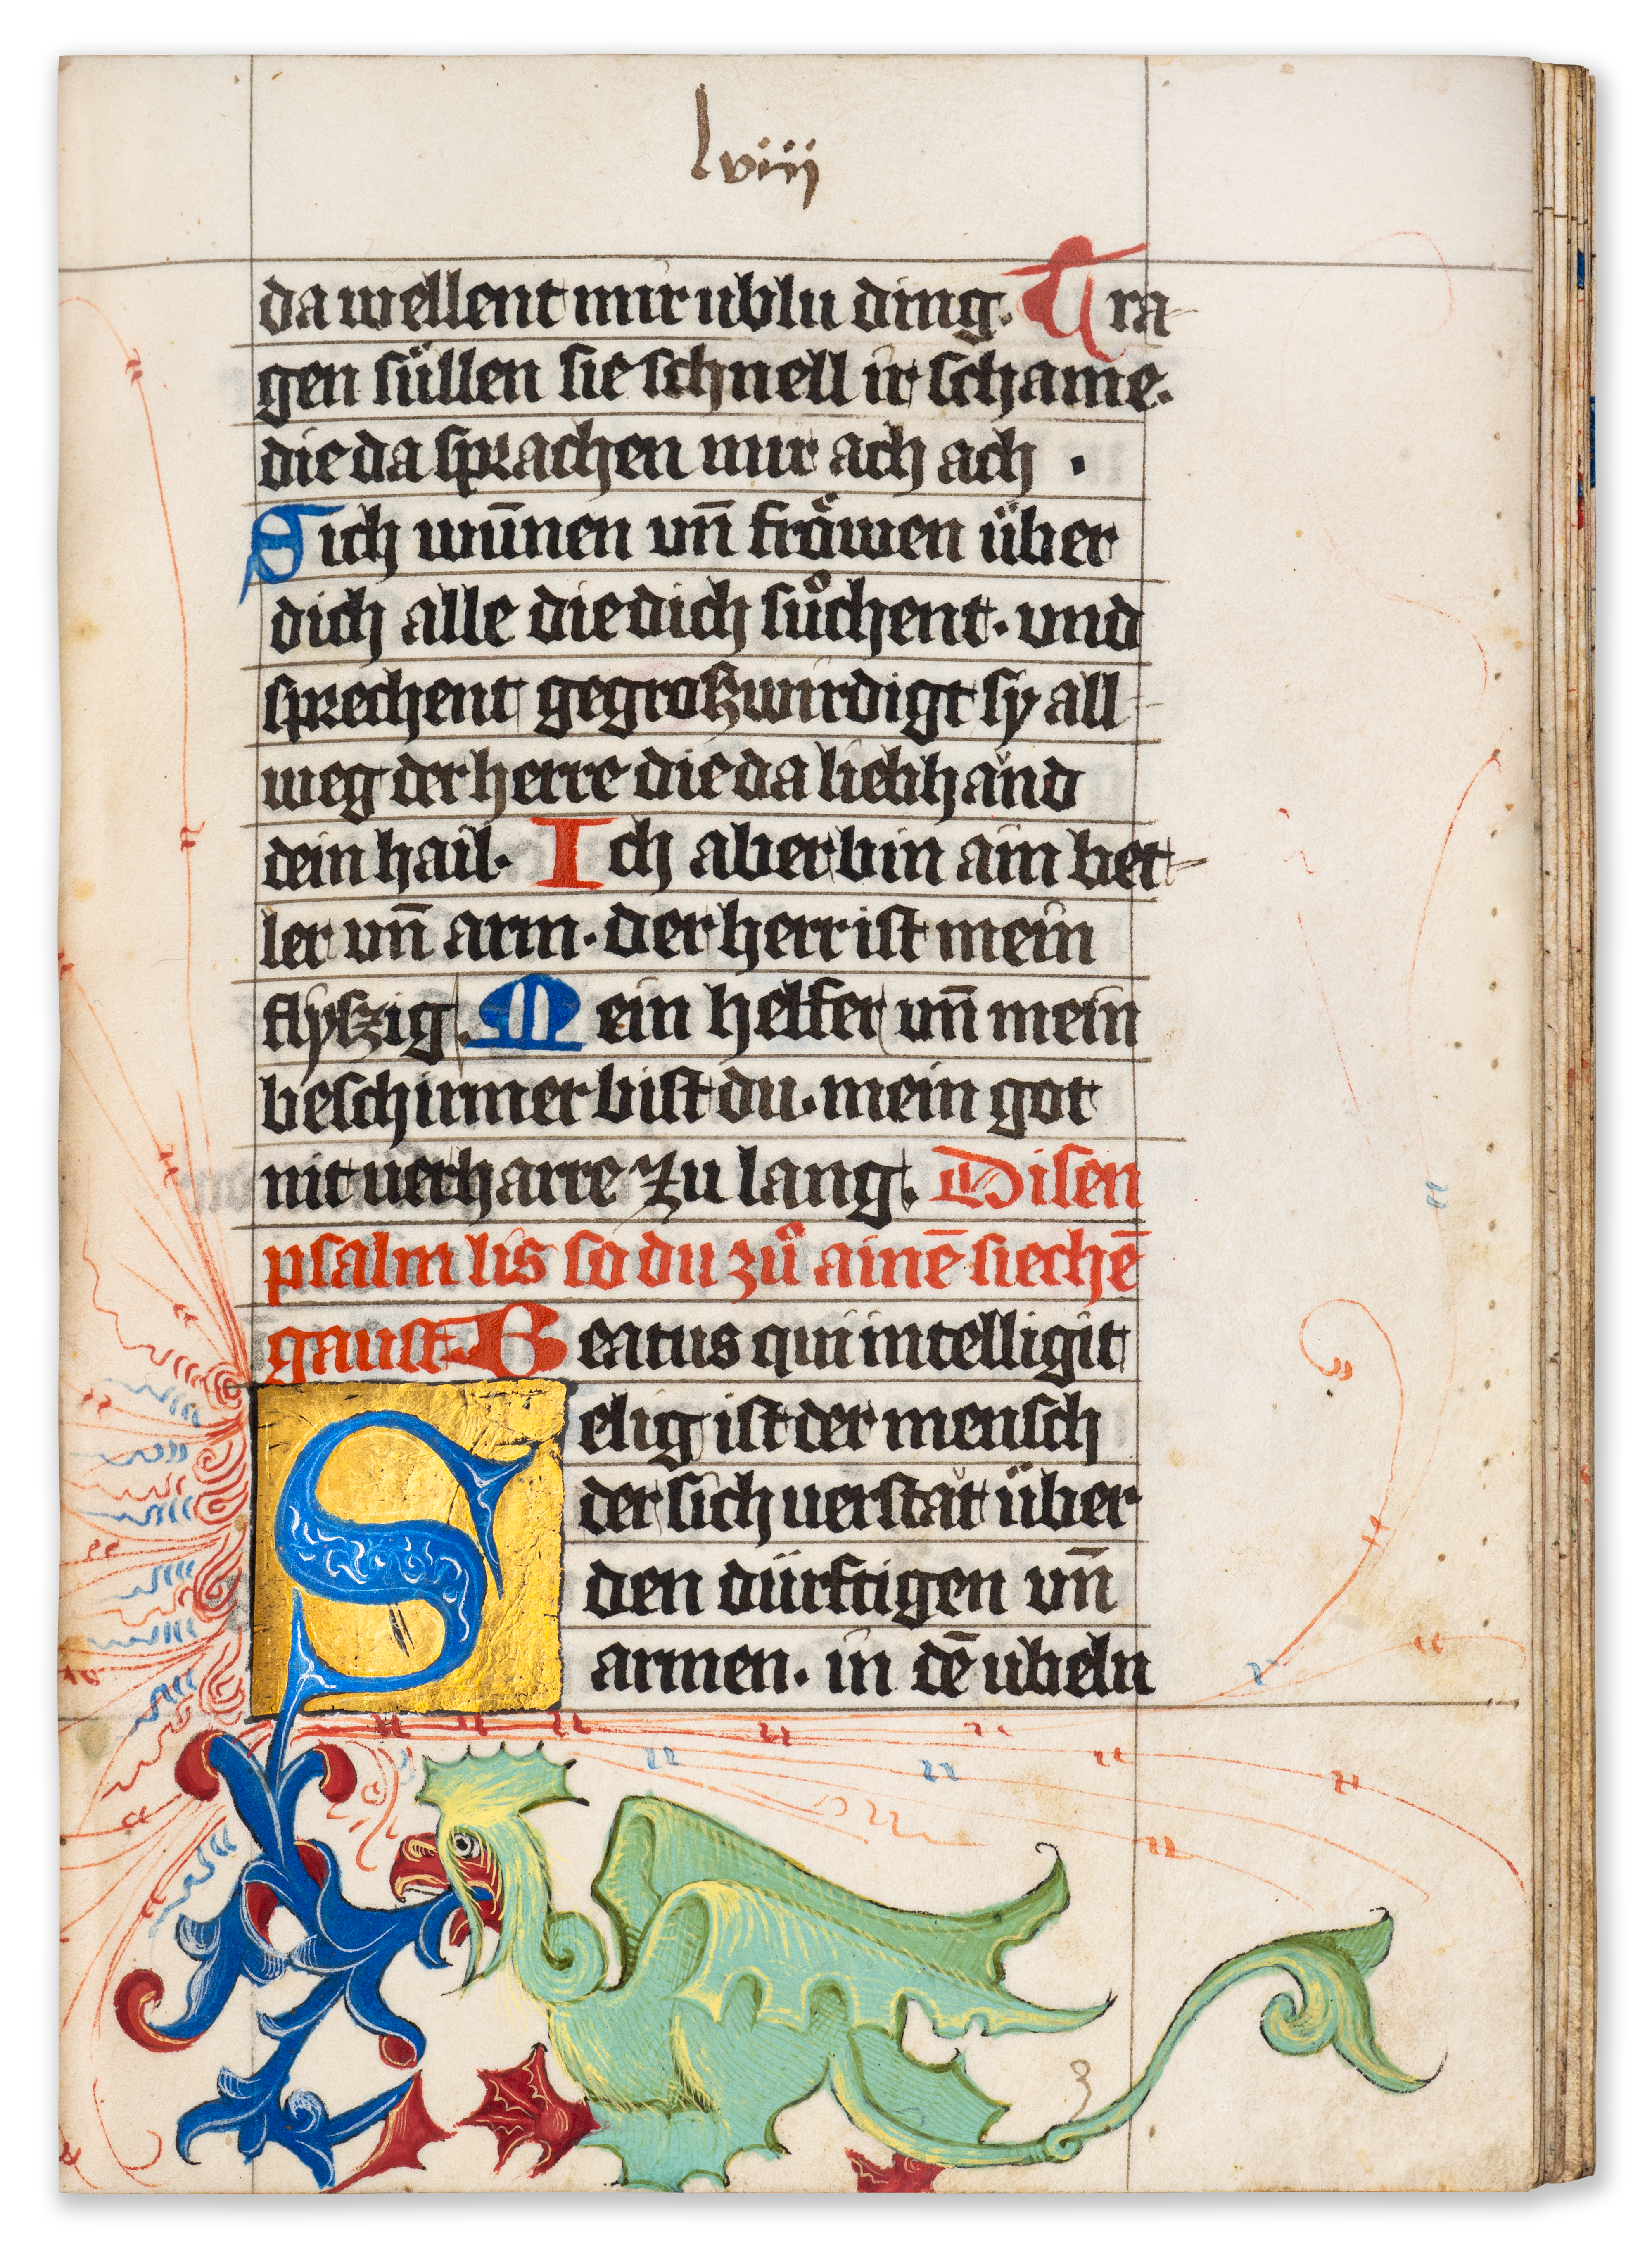 lviij
da wellent mir ublu ding. Tra-
gen süllen sie schnell ir schame.
die da sprachen mir ach ach .
Sich wūnen vn̄ fröwen über
dich alle die dich sůchent. und
sprechent gegroszwirdigt sy all-
weg der herre die da lieb händ
dein hail. Ich aber bin ain bet-
ler vn̄ arm. der herr ist mein
flyszig. Mein helfer vn̄ mein
beschirmer bist du. mein got
nit verharre zu lang. Disen
psalm lis so du zů ainē siechē
gaust Beatus qui intelligit
Selig ist der mensch
der sich verstät über
den dürftigen vn̄
armen. in dē ubeln